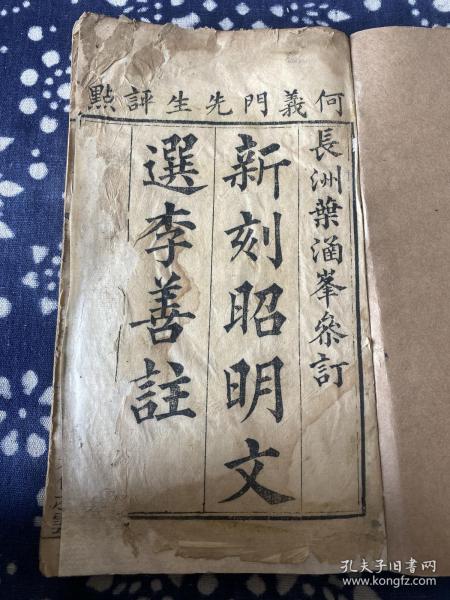 何義門先生評點
長洲葉涵峯叅訂
新刻昭明文
選李善註
孔夫子旧书网
www.kongfz.com